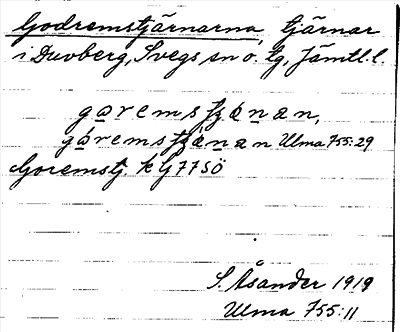 Godremstjärnarna, tjärnar
i Duvberg, Svegs sn o. tg, Jämtl. l.
gɑremstjǫ́nan,
gɑ́remstjǫ́nan Ulma 755:29
Goremstj. k G77SÖ
S. Åsander 1919
Ulma 755:11